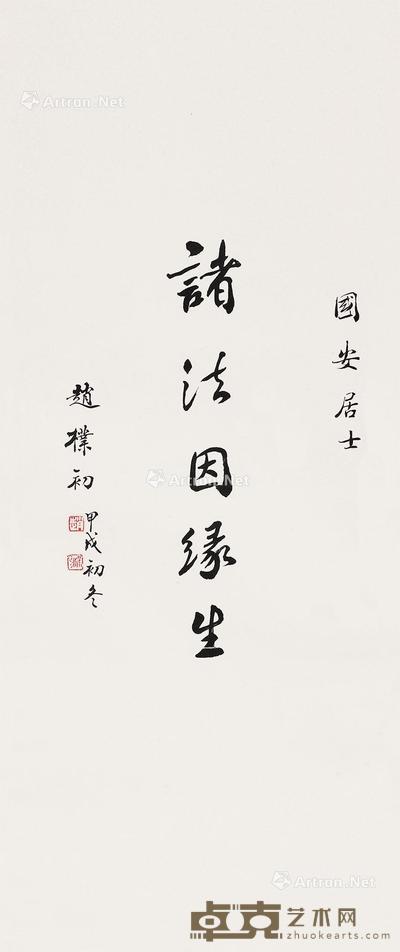 國安居士
諸法因緣生
趙樸初
甲戌初冬
Artron.Net
Artron.Net
Artron.Net
卓克艺术网
zhuokearts.com